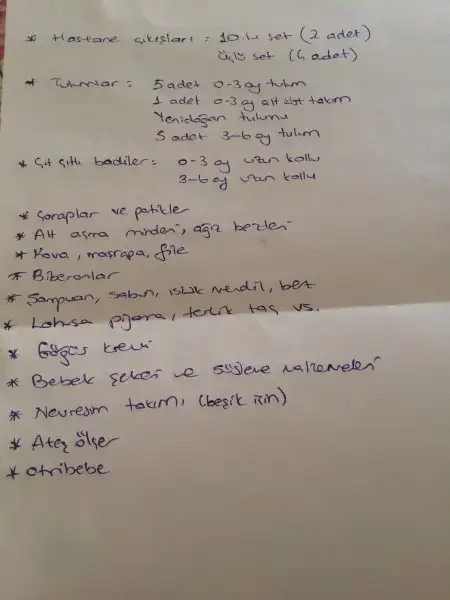 * Hastane çıkışları : 10 lu set (2 adet)
üçlü set (4 adet)
* Tulumlar : 5 adet 0-3 ay tulum
1 adet 0-3 ay alt üst takım
Yenidoğan tulumu
5 adet 3-6 ay tulum
* Çıt çıtlı badiler : 0-3 ay uzun kollu
3-6 ay uzun kollu
* Çoraplar ve patikler
* Alt açma minderi, ağız bezleri
* Kova, maşrapa, file
* Biberonlar
* Şampuan, sabun, ıslak mendil, bez
* Lohusa pijama, terlik taç vs.
* Göğüs kremi
* Bebek şekeri ve süsleme malzemeleri
* Nevresim takımı (beşik için)
* Ateş ölçer
* otribebe